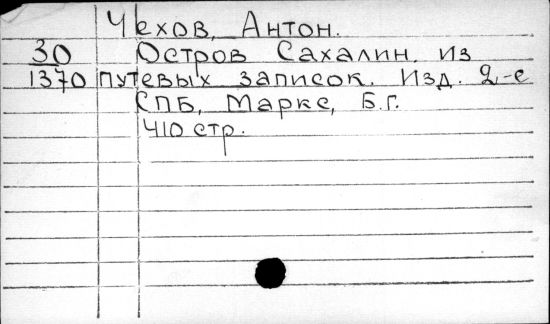 Чехов, Антон.
30 Остров Сахалин. Из
1370 путевых записок. Изд. 2-е
СПБ, Маркс, Б.г.
410 стр.